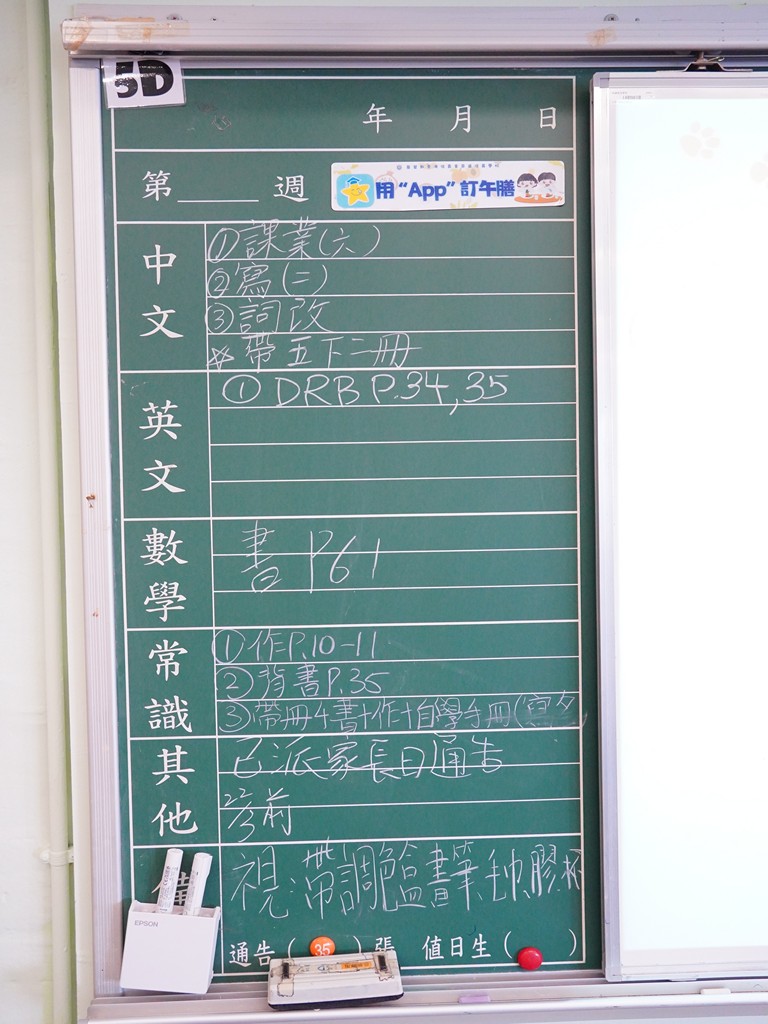 5D
年 月 日
第____週
用“App”訂午膳
中文
①課業(六)
②寫(二)
③詞改
☆帶五下二冊
英文
① DRB P.34,35
數學
書 P61
常識
①作P.10-11
②背書P.35
③帶冊4書+作+自學手冊(
其他
已派家長日通告
前
視 帶調色盒畫筆,毛巾,膠杯
EPSON
通告( 35 )張 值日生( )